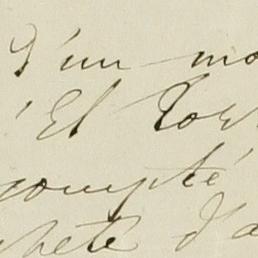 d'un mo
'El Tor
compté
heté d'a